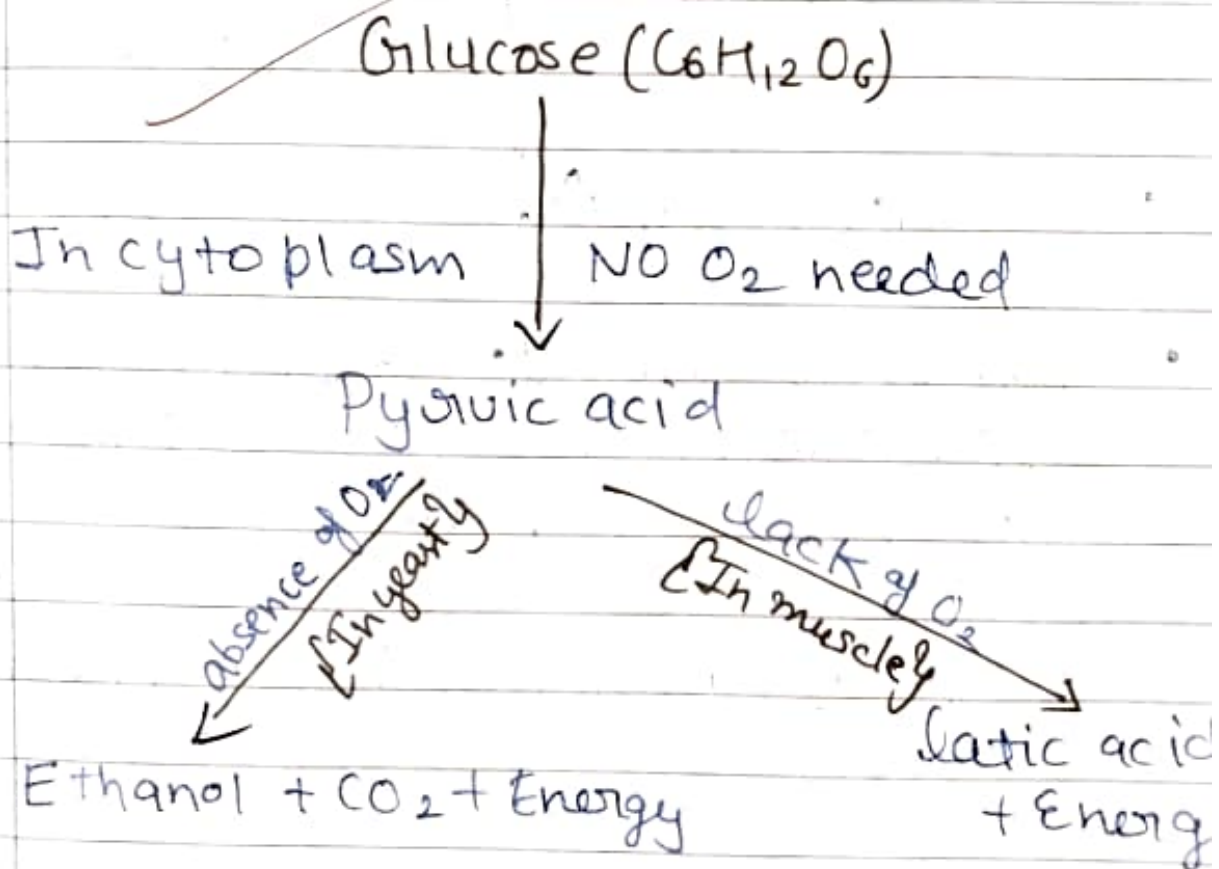 Glucose (C6H12O6)
In cytoplasm NO O2 needed
Pyruvic acid
absence of O2
{In yeast}
lack of O2
{In muscle}
Ethanol + CO2 + Energy
latic acid
+ Energ